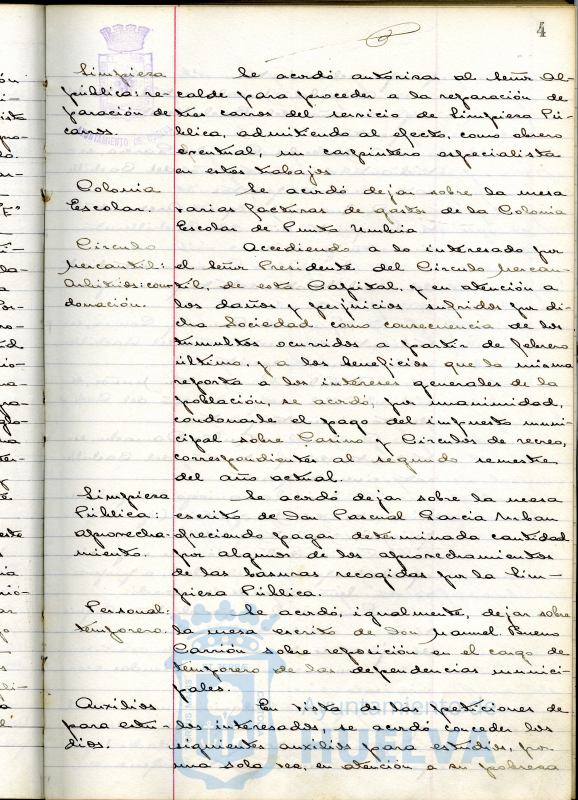 4
Limpieza
pública: re-
paración de
carros.
Se acordó autorizar al Señor Al-
calde para proceder a la reparación de
tres carros del servicio de Limpieza Pú-
blica, admitiendo al efecto, como obrero
eventual, un carpintero especialista
en estos trabajos.
Colonia
Escolar.
Se acordó dejar sobre la mesa
varias facturas de gastos de la Colonia
Escolar de Punta Umbría
Círculo
Mercantil:
Arbitrios: con-
donación.
Accediendo a lo interesado por
el Señor Presidente del Círculo Mercan-
til, de esta Capital, y en atención a
los daños y perjuicios sufridos por di-
cha Sociedad como consecuencia de los
tumultos ocurridos a partir de febrero
último, y a los beneficios que la misma
reporta a los intereses generales de la
población, se acordó, por unanimidad,
condonarle el pago del impuesto muni-
cipal sobre Casino y Círculos de recreo,
correspondientes al segundo semestre
del año actual.
Limpieza
Pública:
aprovecha-
miento.
Se acordó dejar sobre la mesa
escrito de Don Pascual García Urban
ofreciendo pagar determinada cantidad
por algunos de los aprovechamientos
de las basuras recogidas por la Lim-
pieza Pública.
Personal:
temporero.
Se acordó, igualmente, dejar sobre
la mesa escrito de Don Manuel Bueno
Carrión sobre reposición en el cargo de
temporero de las dependencias munici-
pales.
Auxilios
para estu-
dios.
En vista de las peticiones de
los interesados, se acordó conceder los
siguientes auxilios para estudios, por
una sola vez, en atención a su pobreza
Ayuntamiento de
HUELVA